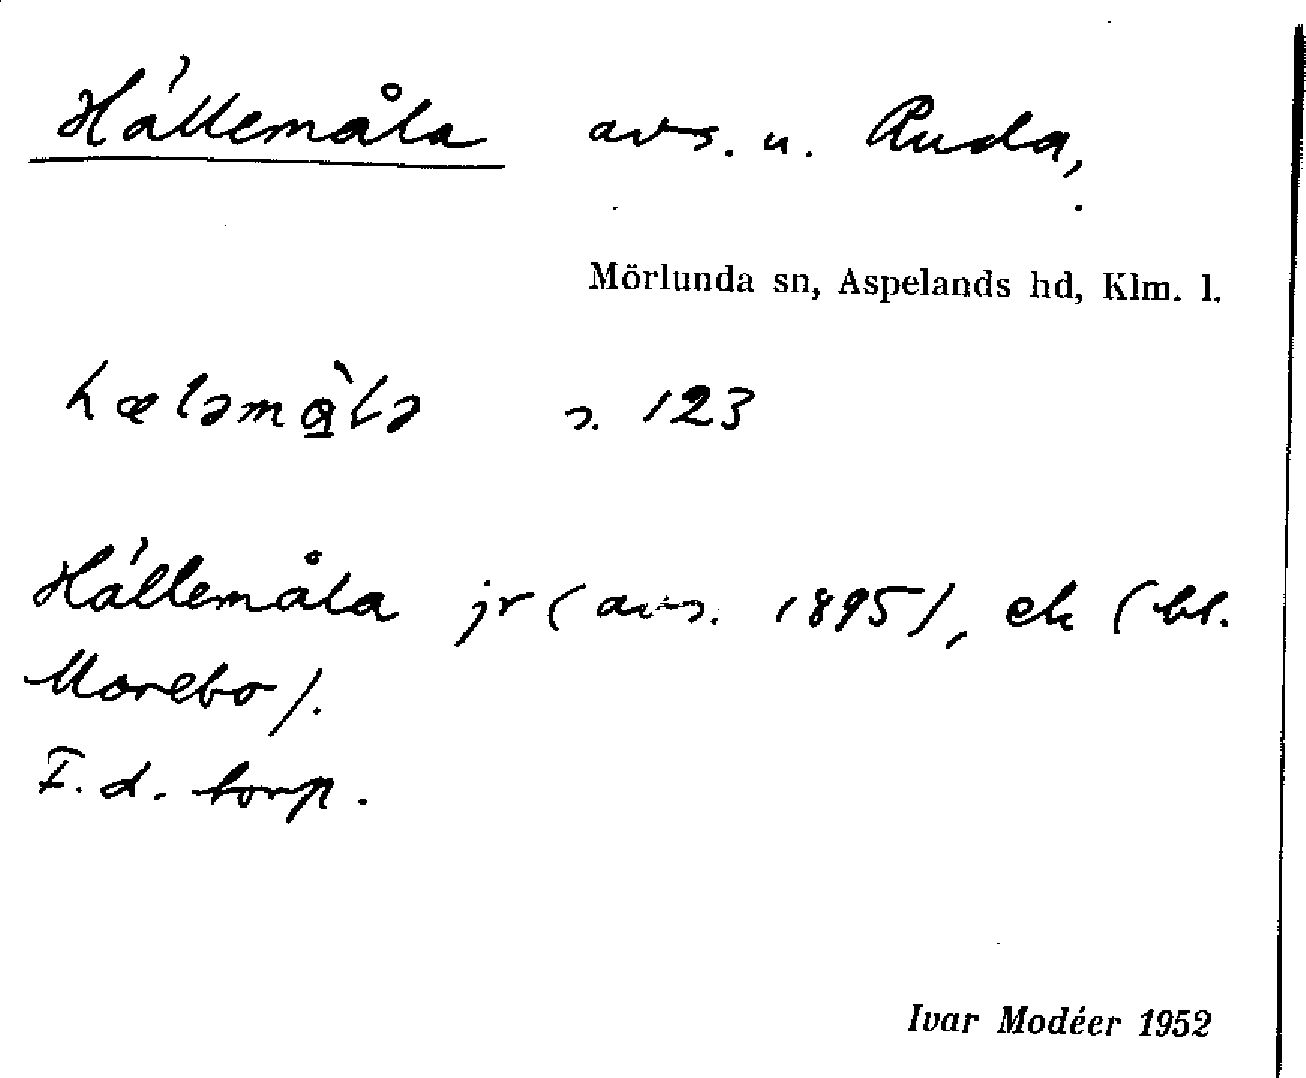 Hällemåla avs. u. Ruda,
Mörlunda sn, Aspelands hd, Klm. l.
hæləmå̀lə s. 123
Hällemåla jr (avs. 1895), ek (bl.
Morebo).
F. d. torp.
Ivar Modéer 1952